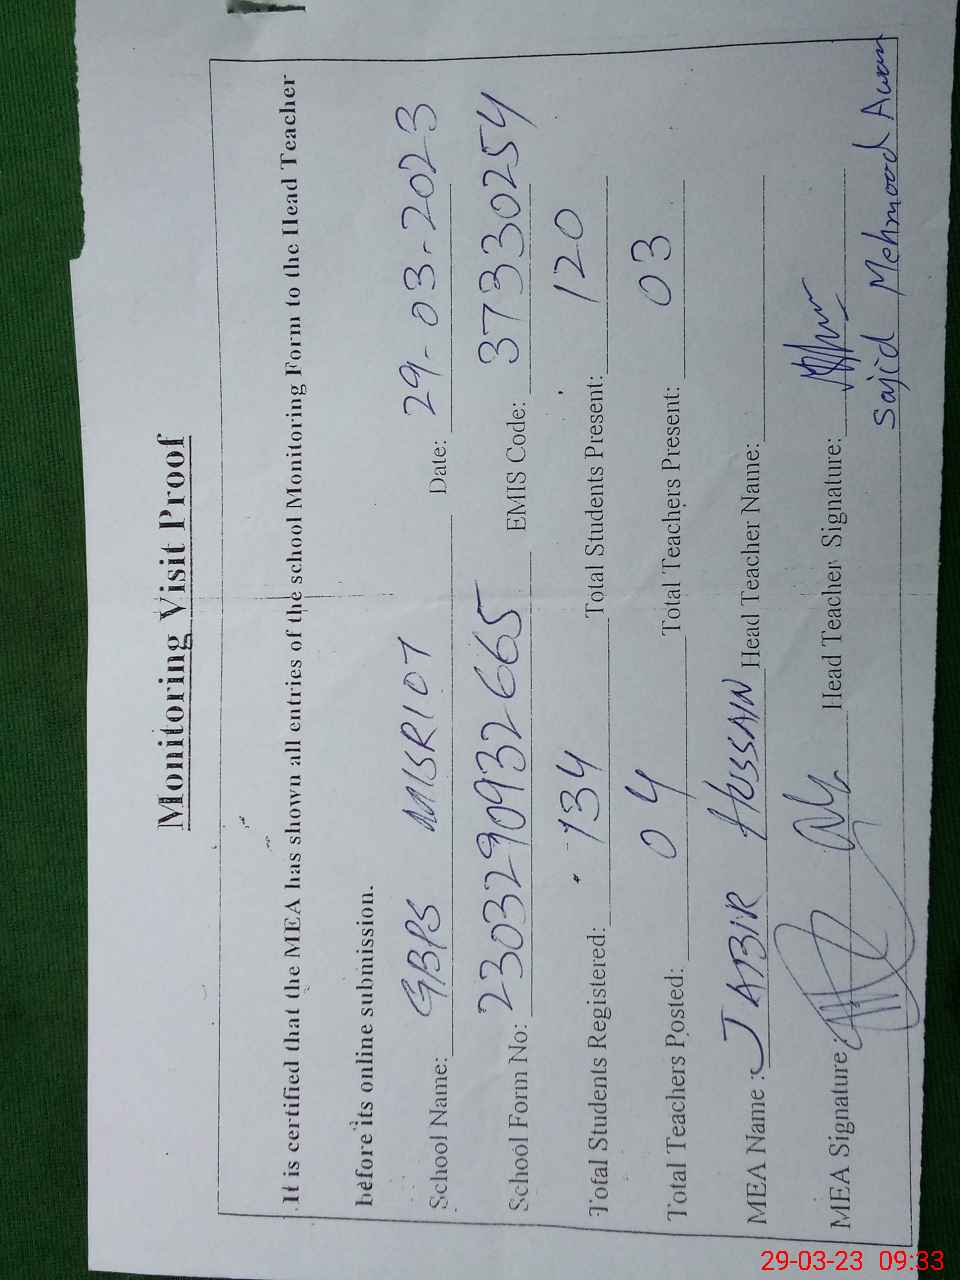 Monitoring Visit Proof
It is certified that the MEA has shown all entries of the school Monitoring Form to the Head Teacher
before its online submission.
School Name: GBPS MISRIOT Date: 29-03-2023
School Form No: 2303290932665 EMIS Code: 37330254
Total Students Registered: 134 Total Students Present: 120
Total Teachers Posted: 04 Total Teachers Present: 03
MEA Name: JABIR HUSSAIN Head Teacher Name:
MEA Signature: Head Teacher Signature:
Sajid Mehmood Awan
29-03-23 09:33